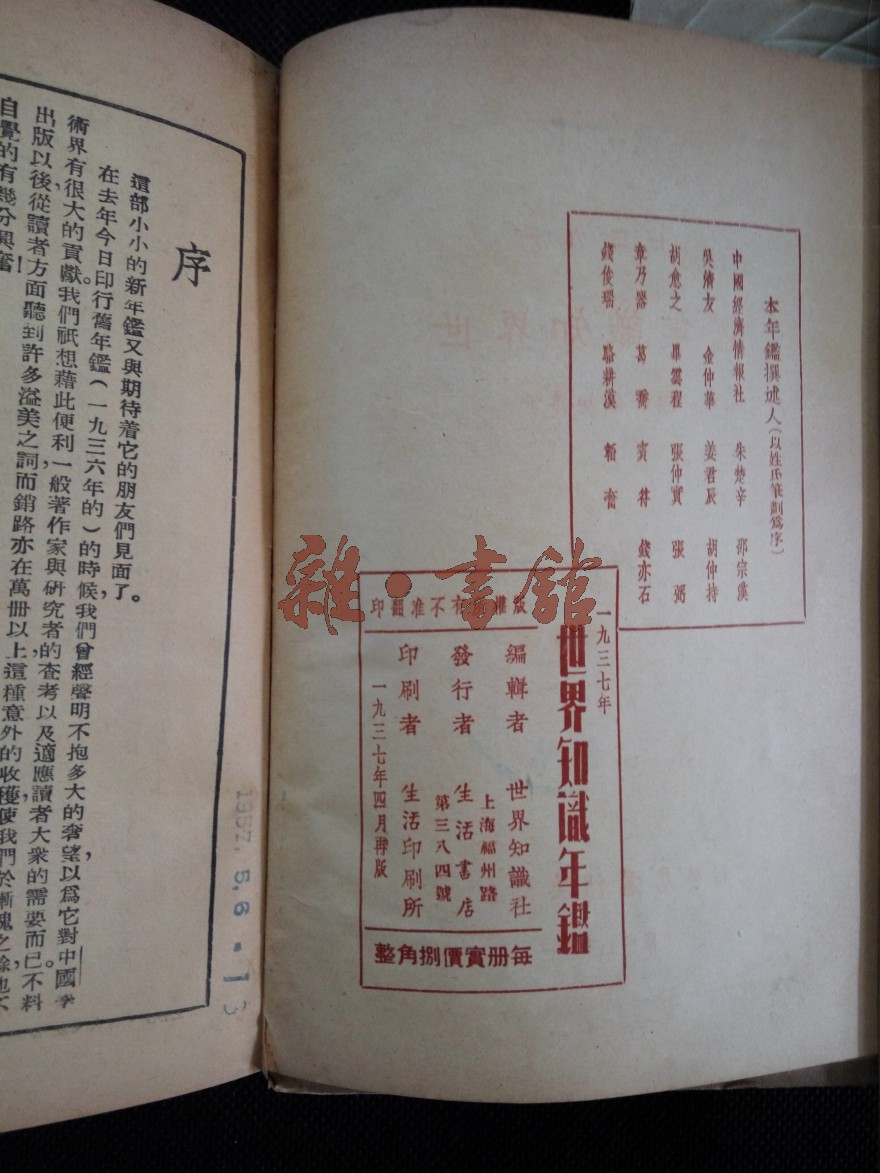 本年鑑撰述人(以姓氏筆劃爲序)
中國經濟情報社 朱楚辛 邵宗漢
吳清友 金仲華 姜君辰 胡仲持
胡愈之 畢雲程 張仲實 張弼
章乃器 葛喬 賓符 錢亦石
錢俊瑞 駱耕漠
一九三七年
世界知識年鑑
版權所有不准翻印
編輯者 世界知識社
上海福州路
發行者 生活書店
第三八四號
印刷者 生活印刷所
一九三七年四月再版
每册實價捌角整
序
這部小小的新年鑑又與期待着它的朋友們見面了。
在去年今日印行舊年鑑(一九三六年的)的時候,我們曾經聲明不抱多大的奢望,以爲它對中國學
術界有很大的貢獻。我們祇想藉此便利一般著作家與研究者的查考,以及適應讀者大衆的需要而已。不料
出版以後,從讀者方面聽到許多溢美之詞,而銷路亦在萬冊以上,這種意外的收穫使我們於慚愧之餘,也不
自覺的有幾分興奮
1957.5.6.
13
雜·書館